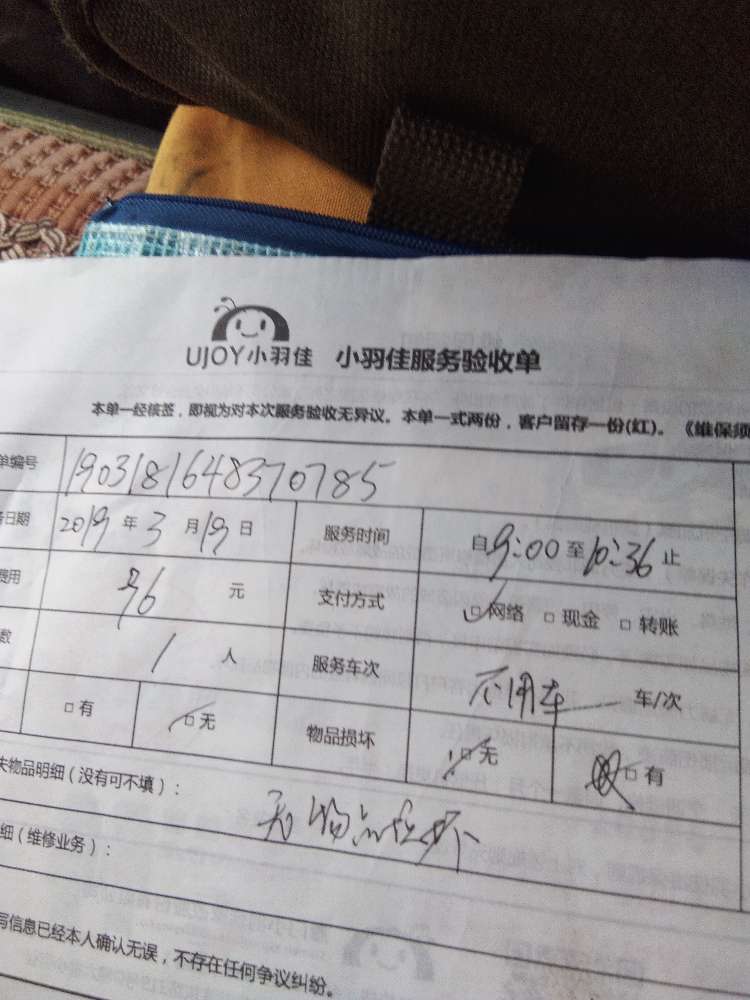 UJOY小羽佳 小羽佳服务验收单
本单一经核签，即视为对本次服务验收无异议。本单一式两份，客户留存一份(红)。《维保须
单编号 1903181648370785
务日期 2019 年 3 月 19 日 服务时间 自 9:00 至 10:36 止
费用 76 元 支付方式 □网络 □现金 □转账
数 1 人 服务车次 不用车 车/次
□有 □无 物品损坏 □无 □有
失物品明细（没有可不填）： 无物品损坏
细（维修业务）：
写信息已经本人确认无误，不存在任何争议纠纷。